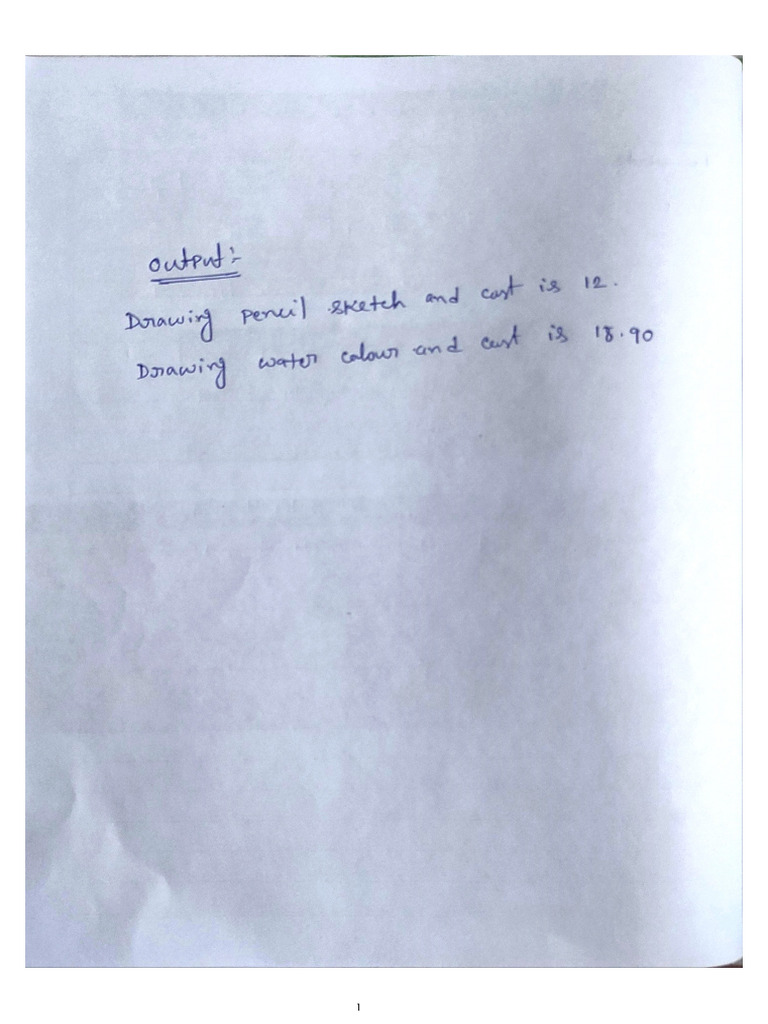 Output:-
Drawing pencil sketch and cost is 12.
Drawing water colour and cost is 18.90
1